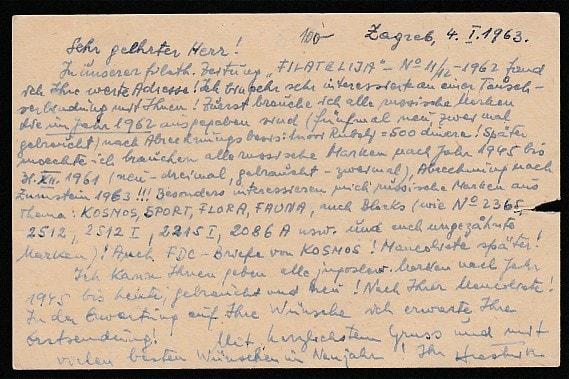 100-
Zagreb, 4. I. 1963.
Sehr geehrter Herr!
In unserer filath. Zeitung „FILATELIJA" – No 11/12 – 1962 fand
ich Ihre werte Adresse! Ich bin sehr interessiert an einer Tausch-
verbindung mit Ihnen! Zürst brauche ich alle russische Marken
die im Jahr 1962 ausgegeben sind (fünfmal neu, zwei mal
gebraucht) nach Abrechnungsbasis: = 500 dinera! Später
moechte ich brauchen alle russische Marken nach Jahr 1945 bis
31. XII. 1961 (neu – dreimal, gebraucht – zweimal), Abrechnung nach
Zumstein 1963!!! Besonders interessieren mich russische Marken aus
Thema: KOSMOS, SPORT, FLORA, FAUNA, auch Blocks (wie No 2365,
2512, 2512 I, 2215 I, 2086 A usw. und auch ungezähnte
Marken)! Auch FDC – Briefe von KOSMOS! Mancoliste später!
Ich kann Ihnen geben alle jugoslaw. Marken nach Jahr
1945 bis heute, gebraucht und neu! Nach Ihrer Mancoliste!
In der Erwartung auf Ihre Wünsche ich erwarte Ihre
Erstsendung! Mit herzlichstem Gruss und mit
vielen besten Wünschen in Neujahr! Ihr